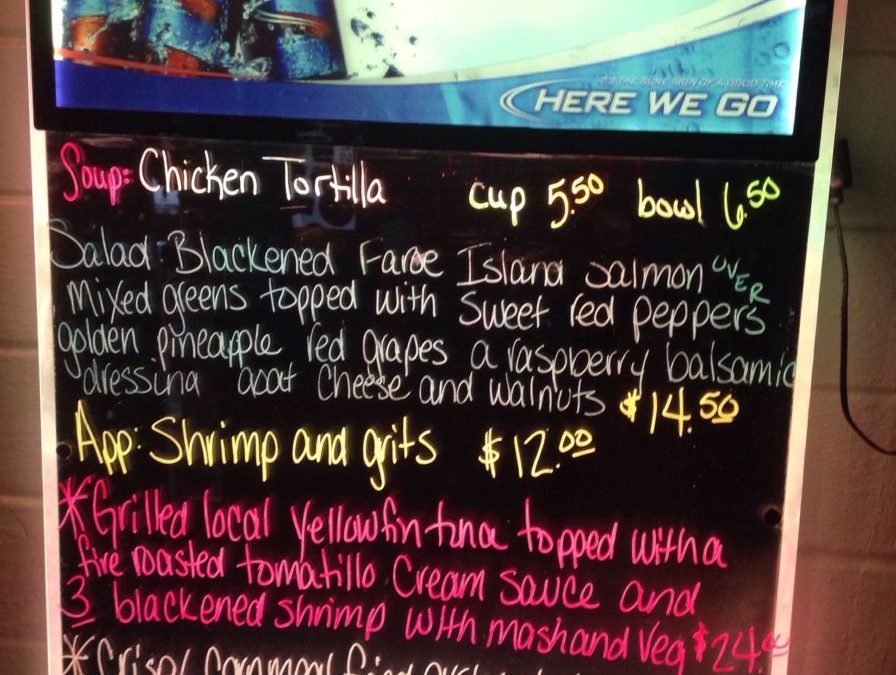 IT'S THE SURE SIGN OF A GOOD TIME
HERE WE GO
Soup: Chicken Tortilla cup 5.50 bowl 6.50
Salad Blackened Faroe Island Salmon OVER
Mixed greens topped with Sweet red peppers
golden pineapple red grapes a raspberry balsamic
dressing goat cheese and walnuts $14.50
App: Shrimp and grits $12.00
*Grilled local yellowfin tuna topped with a
fire roasted tomatillo Cream sauce and
3 blackened shrimp with mash and veg $24.00
*Crispy Cornmeal fried